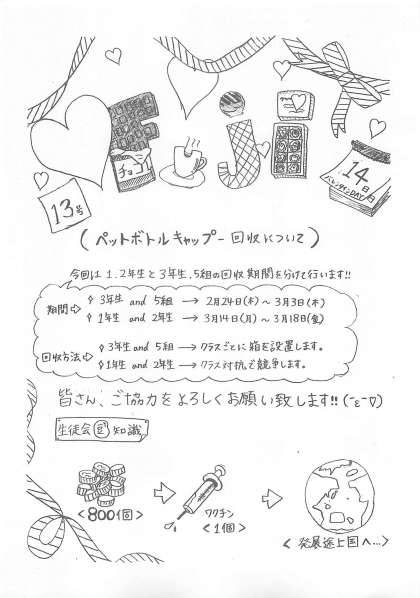 Fuji
チョコ
13号
14日
バレンタインDAY
(ペットボトルキャップ-回収について)
今回は1.2年生と3年生.5組の回収期間を分けて行います!!
期間⇨ 3年生 and 5組 → 2月24日(木)～3月3日(木)
1年生 and 2年生 → 3月14日(月)～3月18日(金)
回収方法⇨ 3年生 and 5組 → クラスごとに箱を設置します。
1年生 and 2年生 → クラス対抗で競争します。
皆さん、ご協力をよろしくお願い致します!!(˘ε˘▽)
生徒会豆知識
<800個>
ワクチン
<1個>
<発展途上国へ...>